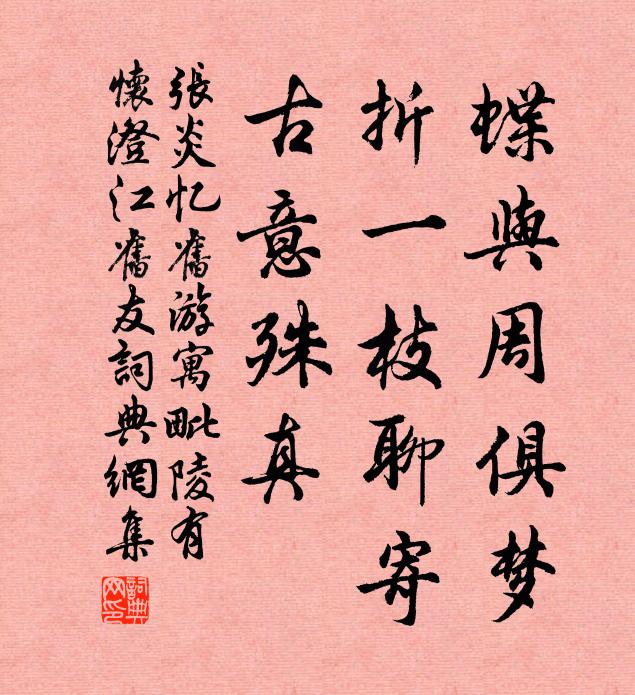 蝶與周俱梦
折一枝聊寄
古意殊真
張炎忆舊游寓毗陵有
懷澄江舊友詞典網集
詞典
网印